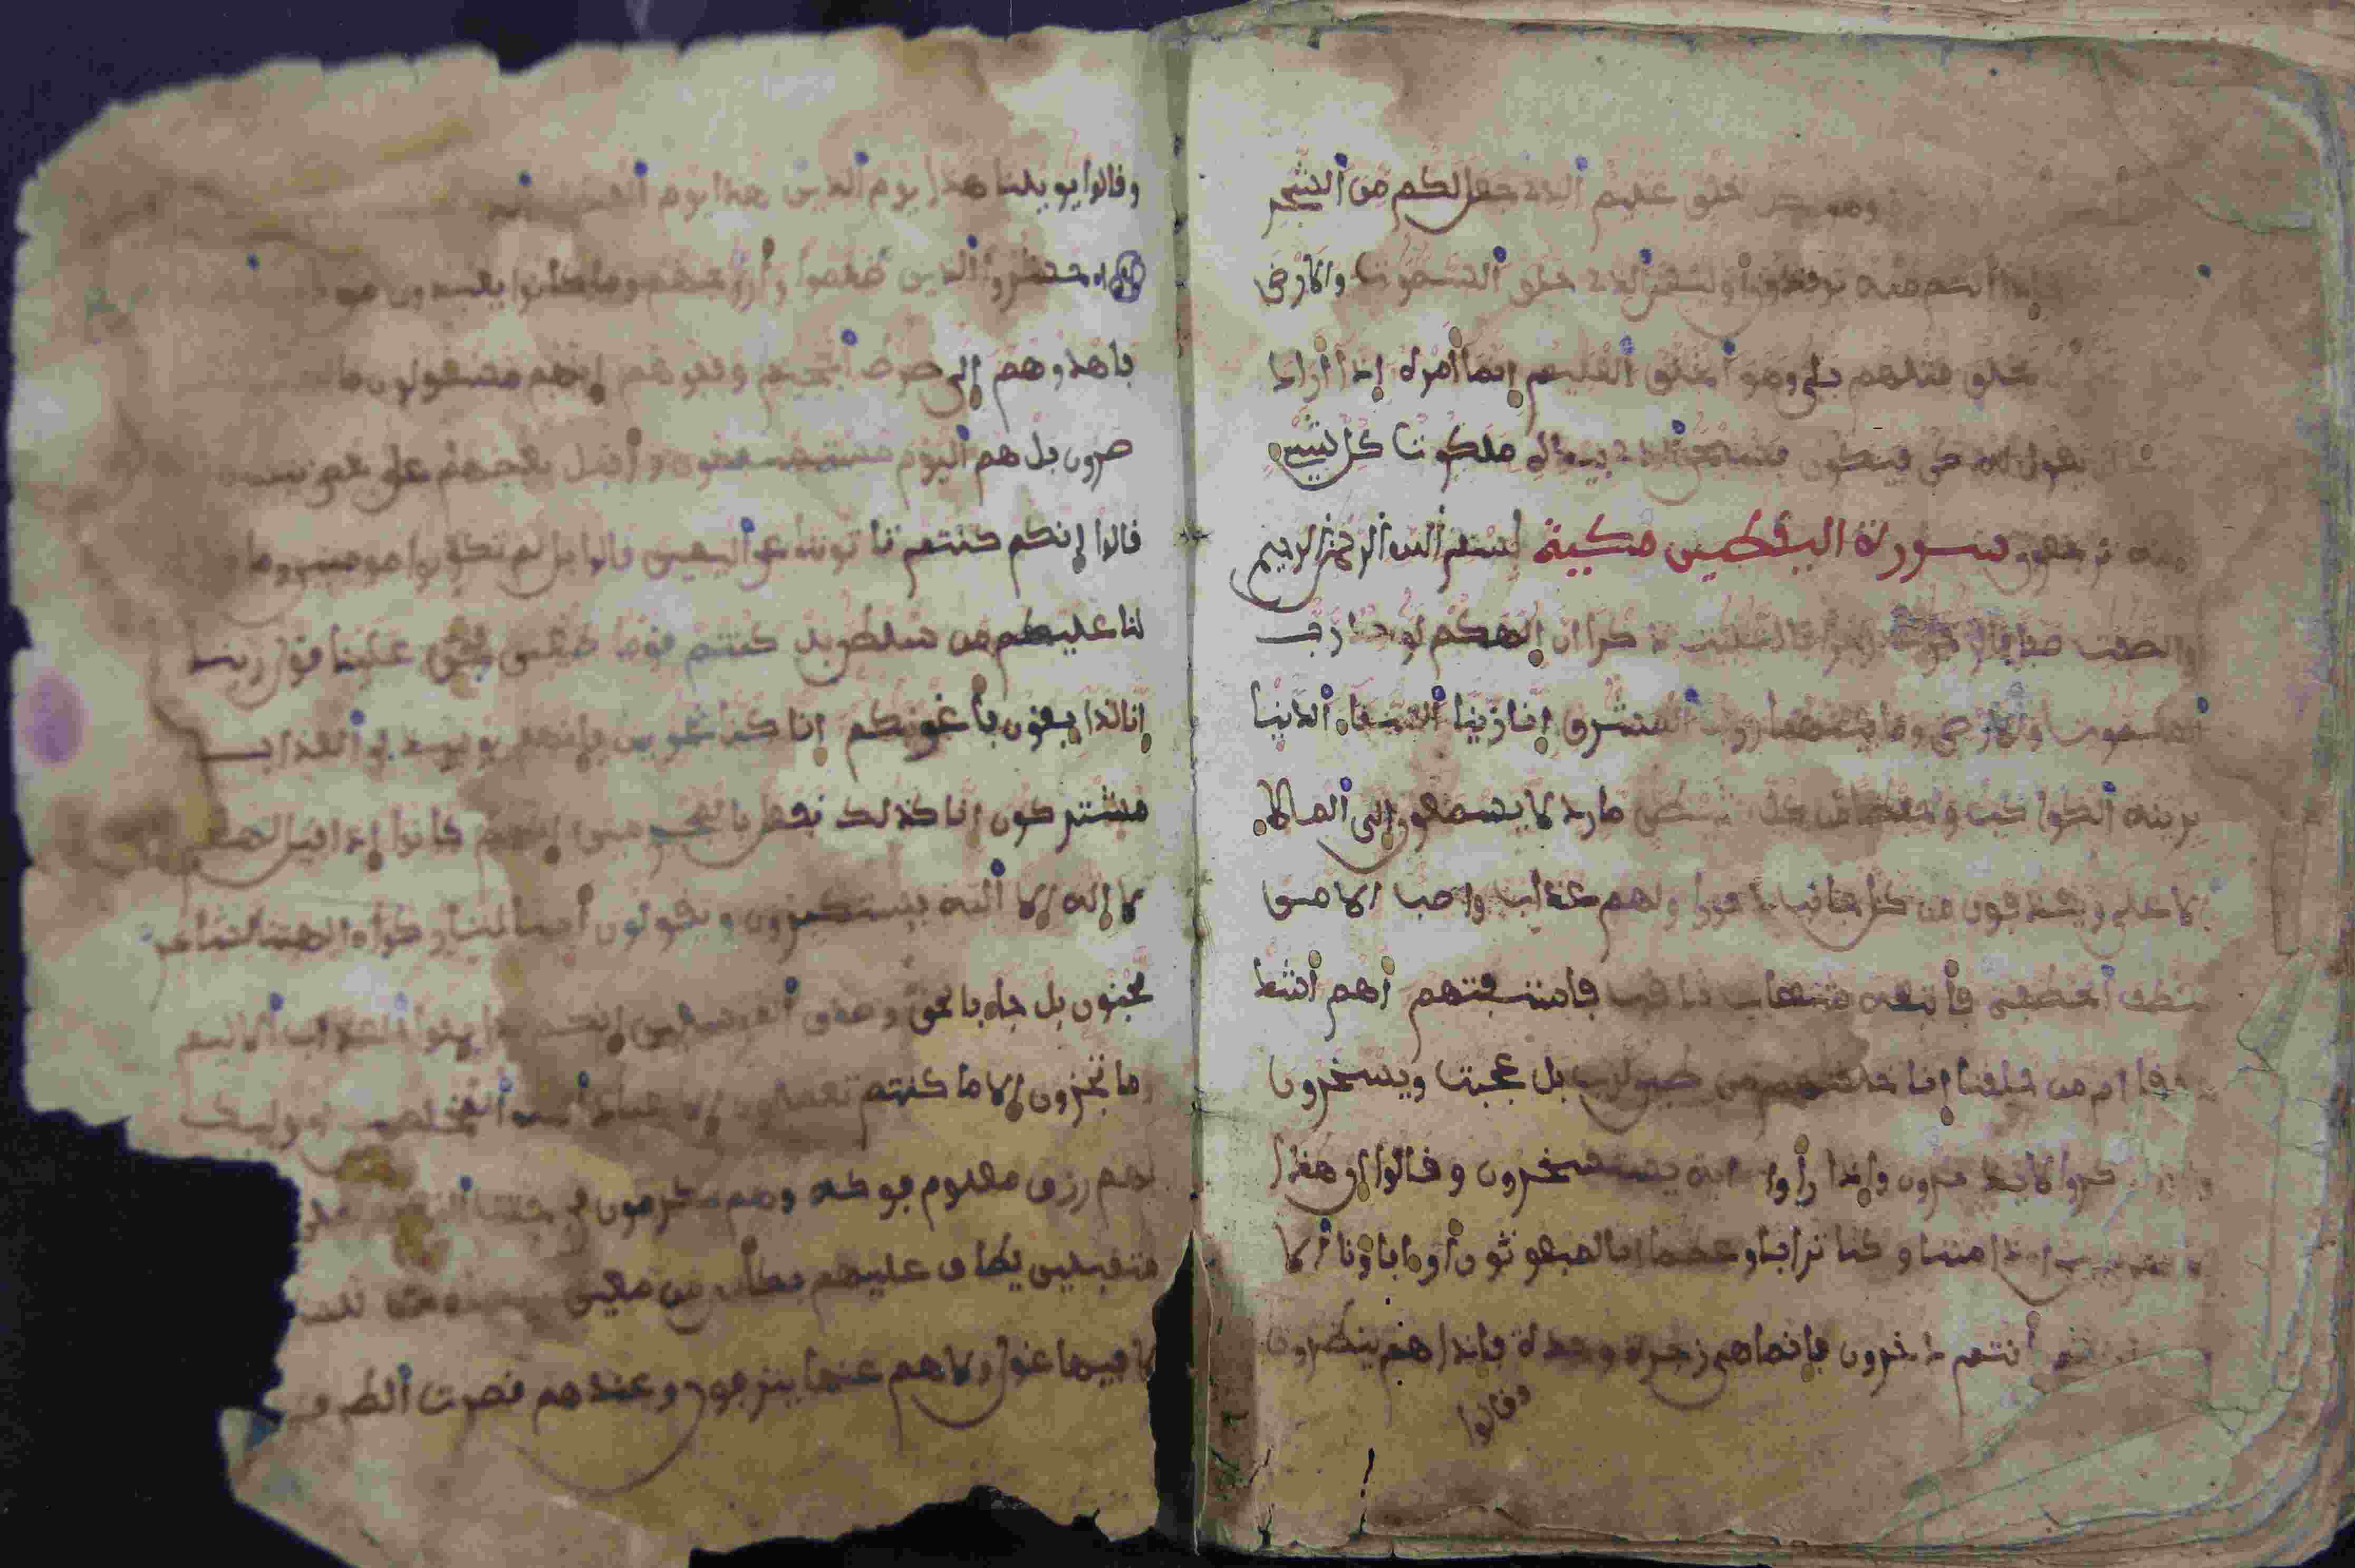 وهو بكل خلق عليم الذي جعل لكم من الشجر
فإذا أنتم منه توقدون أوليس الذي خلق السموت والارض
يخلق مثلهم بلى وهو الخلق العليم إنما أمره إذا أراد
يقول له كن فيكون فسبحن الذي بيده ملكوت كل شيء
ترجعون سورة اليقطين مكية بسم الله الرحمن الرحيم
والصفت صفا فالزجرت زجرا فالتليت ذكرا ان إلهكم لوحد رب
السموت والارض وما بينهما ورب المشرق إنا زينا السماء الدنيا
بزينة الكواكب وحفظا من كل شيطن مارد لا يسمعون إلى الملا
الاعلى ويقذفون من كل جانب دحورا ولهم عذاب واصب الا من
خطف الخطفة فأتبعه شهاب ثاقب فاستفتهم أهم أشد
خلقا ام من خلقنا إنا خلقنهم من طين لازب بل عجبت ويسخرون
وإذا ذكروا لا يذكرون وإذا رأوا اية يستسخرون وقالوا إن هذا
إذا متنا وكنا ترابا وعظما انا لمبعوثون أو اباؤنا ألا
نعم أنتم دخرون فإنما هي زجرة وحدة فإذا هم ينظرون
وقالوا
وقالوا يويلنا هذا يوم الدين هذا يوم الفصل
احشروا الذين ظلموا وأزوجهم وما كانوا يعبدون من
فاهدوهم إلى صرط الجحيم وقفوهم إنهم مسئولون ما
صرون بل هم اليوم مستسلمون وأقبل بعضهم على بعض
قالوا إنكم كنتم تاتوننا عن اليمين قالوا بل لم تكونوا مومنين وما
لنا عليكم من سلطن بل كنتم قوما طغين فحق علينا قول ربنا
إنا لذايقون فأغوينكم إنا كنا غوين فإنهم يوميذ في العذاب
مشتركون إنا كذلك نفعل بالمجرمين إنهم كانوا إذا قيل لهم
لا إله إلا الله يستكبرون ويقولون أينا لتاركوا الهتنا لشاعر
مجنون بل جاء بالحق وصدق المرسلين إنكم لذايقوا العذاب الاليم
وما تجزون إلا ما كنتم تعملون إلا عباد الله المخلصين أوليك
لهم رزق معلوم فوكه وهم مكرمون في جنت النعيم على
متقبلين يطاف عليهم بكأس من معين بيضاء لذة
لا فيها غول ولا هم عنها ينزفون وعندهم قصرت الطرف